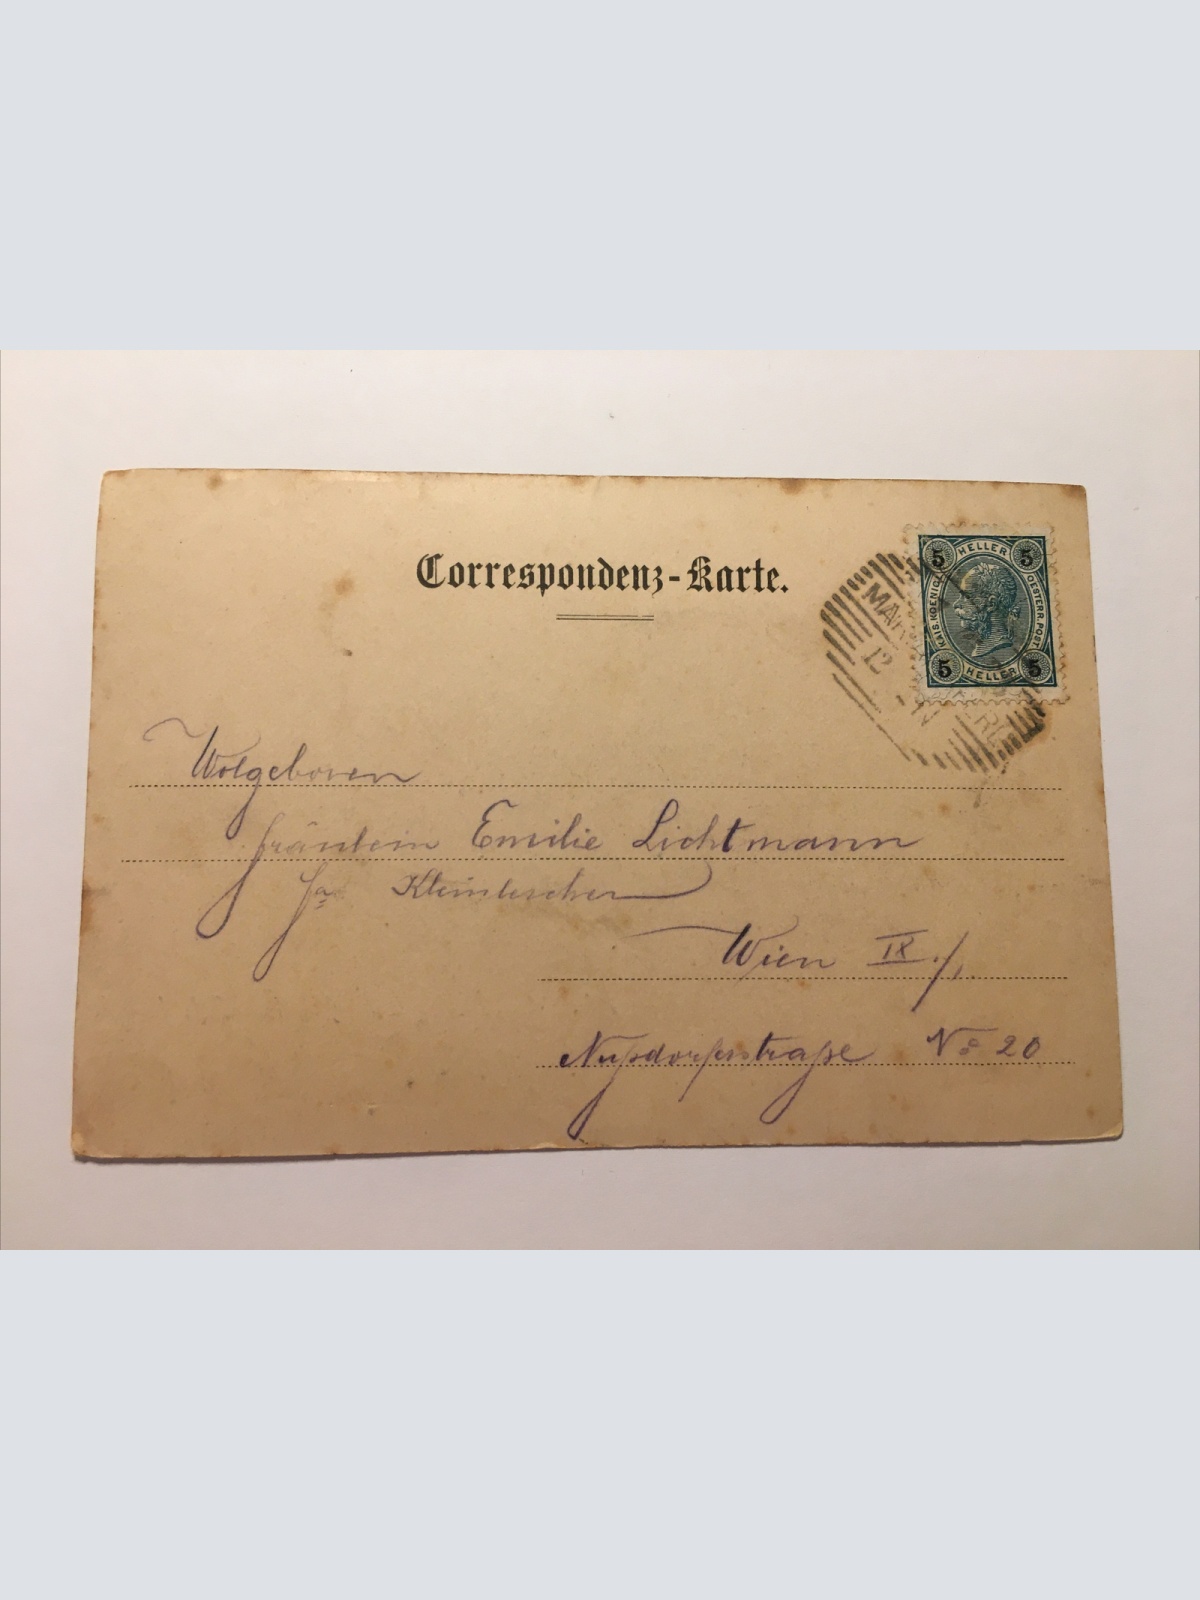 Correspondenz-Karte.
5 HELLER 5
KAIS. KOENIGL. OESTERR. POST
5 HELLER 5
12
Wolgeboren
Fräulein Emilie Lichtmann
Fa
Wien IX./1.
Nußdorferstraße No 20